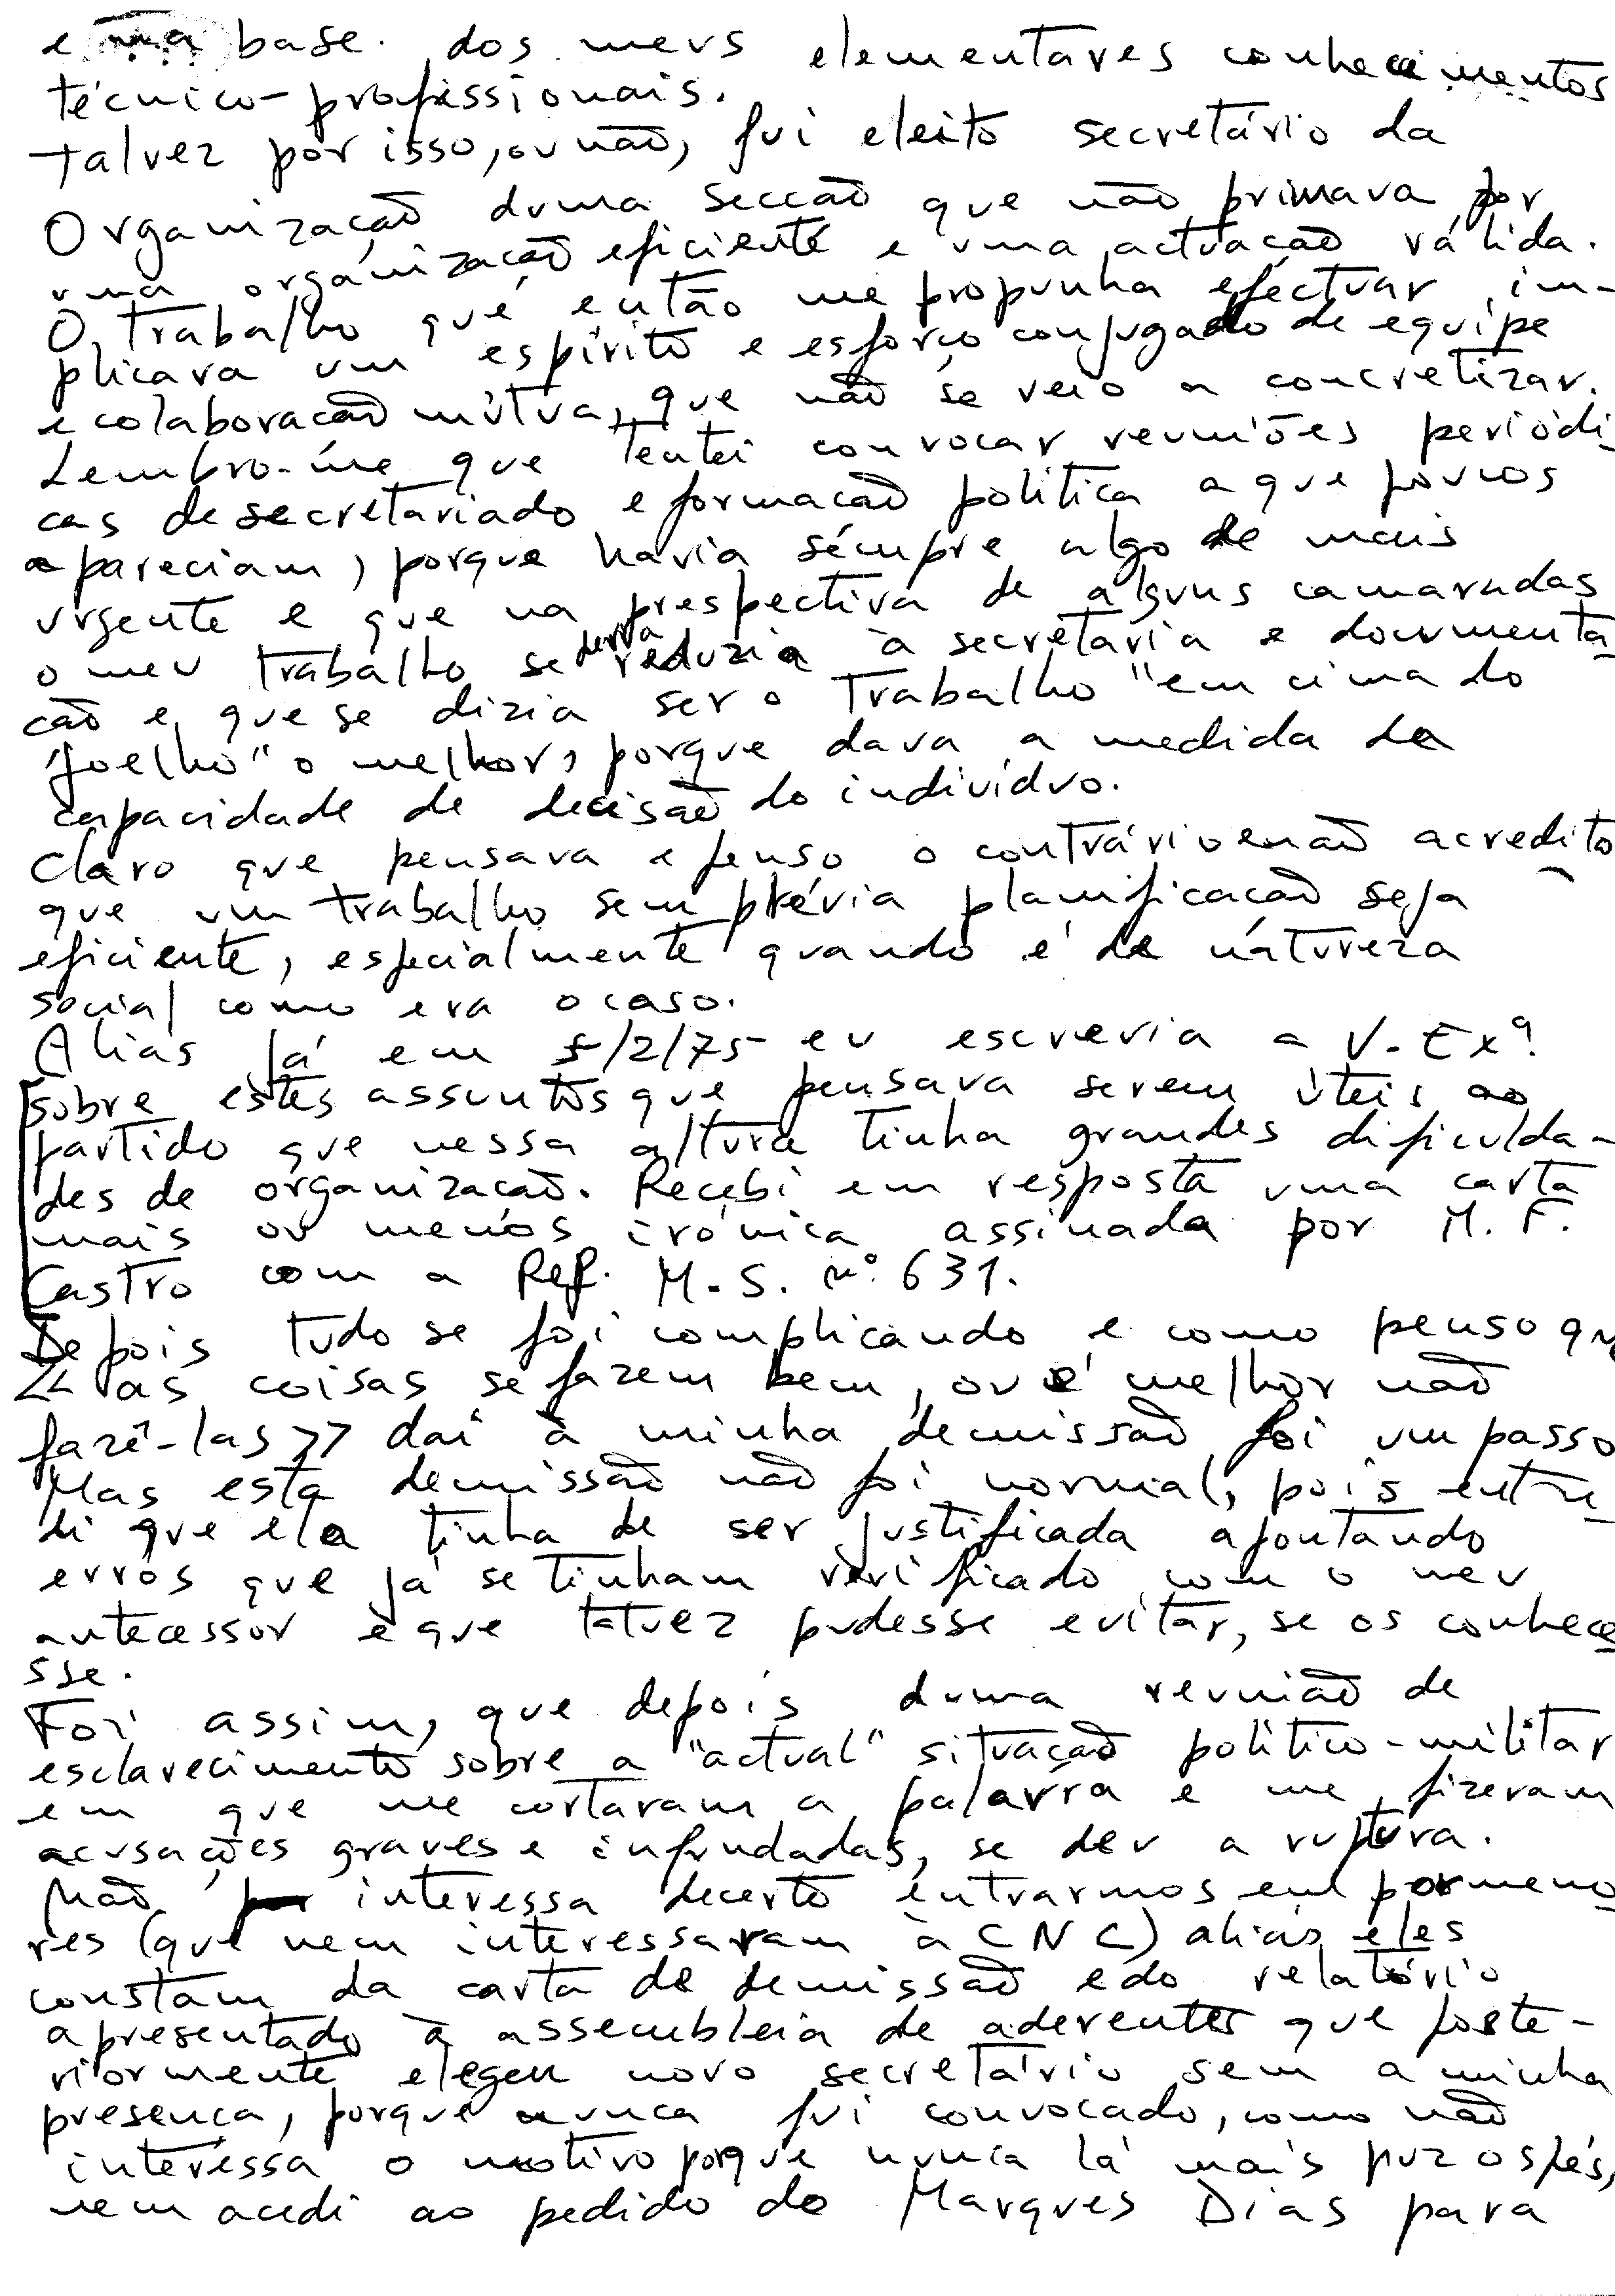 e na base dos meus elementares conhecimentos
técnico-profissionais.
Talvez por isso, ou não, fui eleito secretário da
Organização duma secção que não primava por
uma organização eficiente e uma actuação válida.
O trabalho que então me propunha efectuar, im-
plicava um espírito e esforço conjugado de equipe
e colaboração mútua, que não se veio a concretizar.
Lembro-me que tentei convocar reuniões periódi-
cas de secretariado e formação política a que poucos
apareciam, porque havia sempre algo de mais
urgente e que na prespectiva de alguns camaradas
o meu trabalho se devia reduzia à secretaria e documenta-
ção e que se dizia ser o trabalho "em cima do
joelho" o melhor, porque dava a medida da
capacidade de decisão do indivíduo.
Claro que pensava e penso o contrário e não acredito
que um trabalho sem prévia planificação seja
eficiente, especialmente quando é de natureza
social como era o caso.
Aliás já em 5/2/75 eu escrevia a V. Exª
sobre estes assuntos que pensava serem úteis ao
partido que nessa altura tinha grandes dificulda-
des de organização. Recebi em resposta uma carta
mais ou menos irónica assinada por M. F.
Castro com a Ref. M.S. nº 631.
Depois tudo se foi complicando e como penso que
<< as coisas se fazem bem, ou é melhor não
fazê-las >> daí à minha demissão foi um passo
Mas esta demissão não foi normal, pois enten-
di que ela tinha de ser justificada apontando
erros que já se tinham verificado com o meu
antecessor e que talvez pudesse evitar, se os conhece-
sse.
Foi assim, que depois duma reunião de
esclarecimento sobre a "actual" situação político-militar
em que me cortaram a palavra e me fizeram
acusações graves e infundadas, se deu a ruptura.
Não interessa decerto entrarmos em pormeno
res (que nem interessaram à CNC) aliás eles
constam da carta de demissão e do relatório
apresentado à assembleia de aderentes que poste-
riormente elegeu novo secretário sem a minha
presença, porque nunca fui convocado, como não
interessa o motivo porque nunca lá mais puz os pés,
nem acedi ao pedido do Marques Dias para